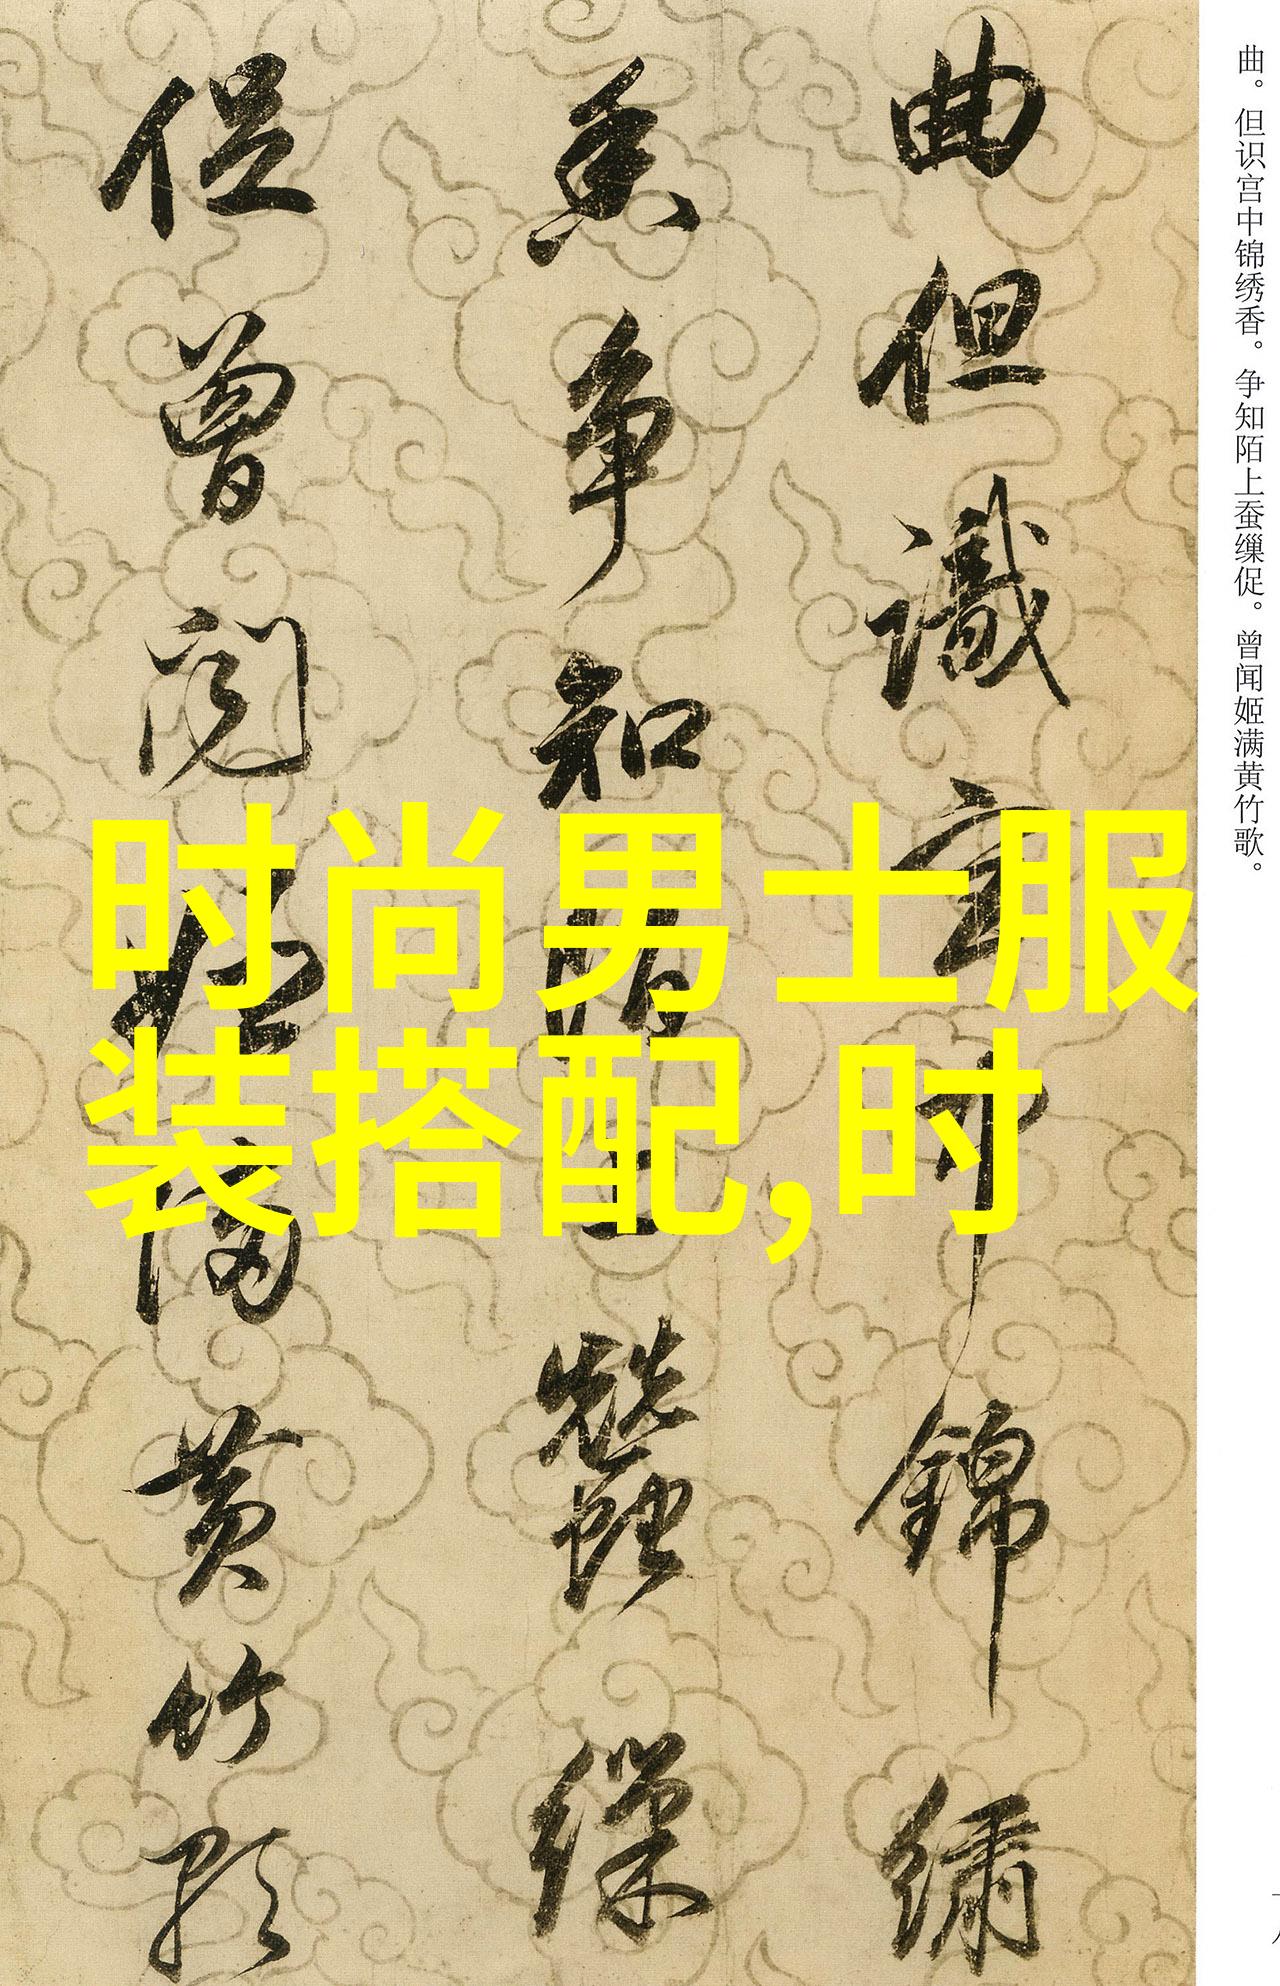 曲但识宫中锦绣
香争知陌上蚕缫
促曾闻姬满黄竹歌
曲。但识宫中锦绣香。争知陌上蚕缫促。曾闻姬满黄竹歌。
时尚男士服
装搭配,时